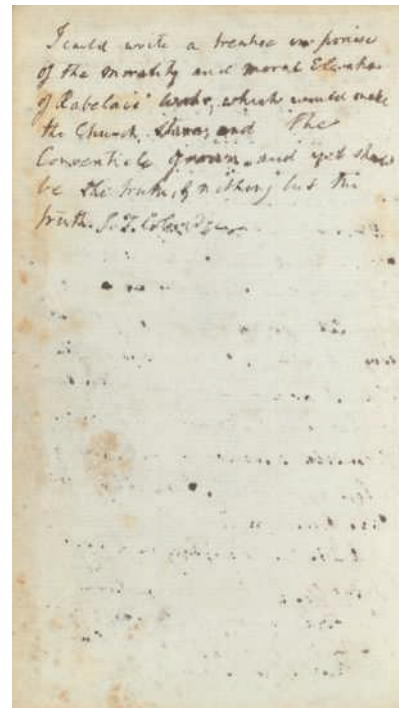 I could write a treatise in praise
of the morality and moral Elevation
of Rabelais' work, which would make
the Church stare, and the
Conventicle groan. and yet should
be the truth, & nothing but the
truth. S. T. Coleridge